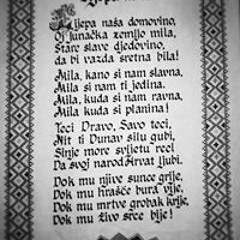 Lijepa naša domovino,
Oj junačka zemljo mila,
Stare slave djedovino,
da bi vazda sretna bila!
Mila, kano si nam slavna,
Mila si nam ti jedina.
Mila, kuda si nam ravna,
Mila, kuda si planina!
Teci Dravo, Savo teci,
Nit ti Dunav silu gubi,
Sinje more svijetu reci
Da svoj narod Hrvat ljubi.
Dok mu njive sunce grije,
Dok mu hrašće bura vije,
Dok mu mrtve grobak krije,
Dok mu živo srce bije!